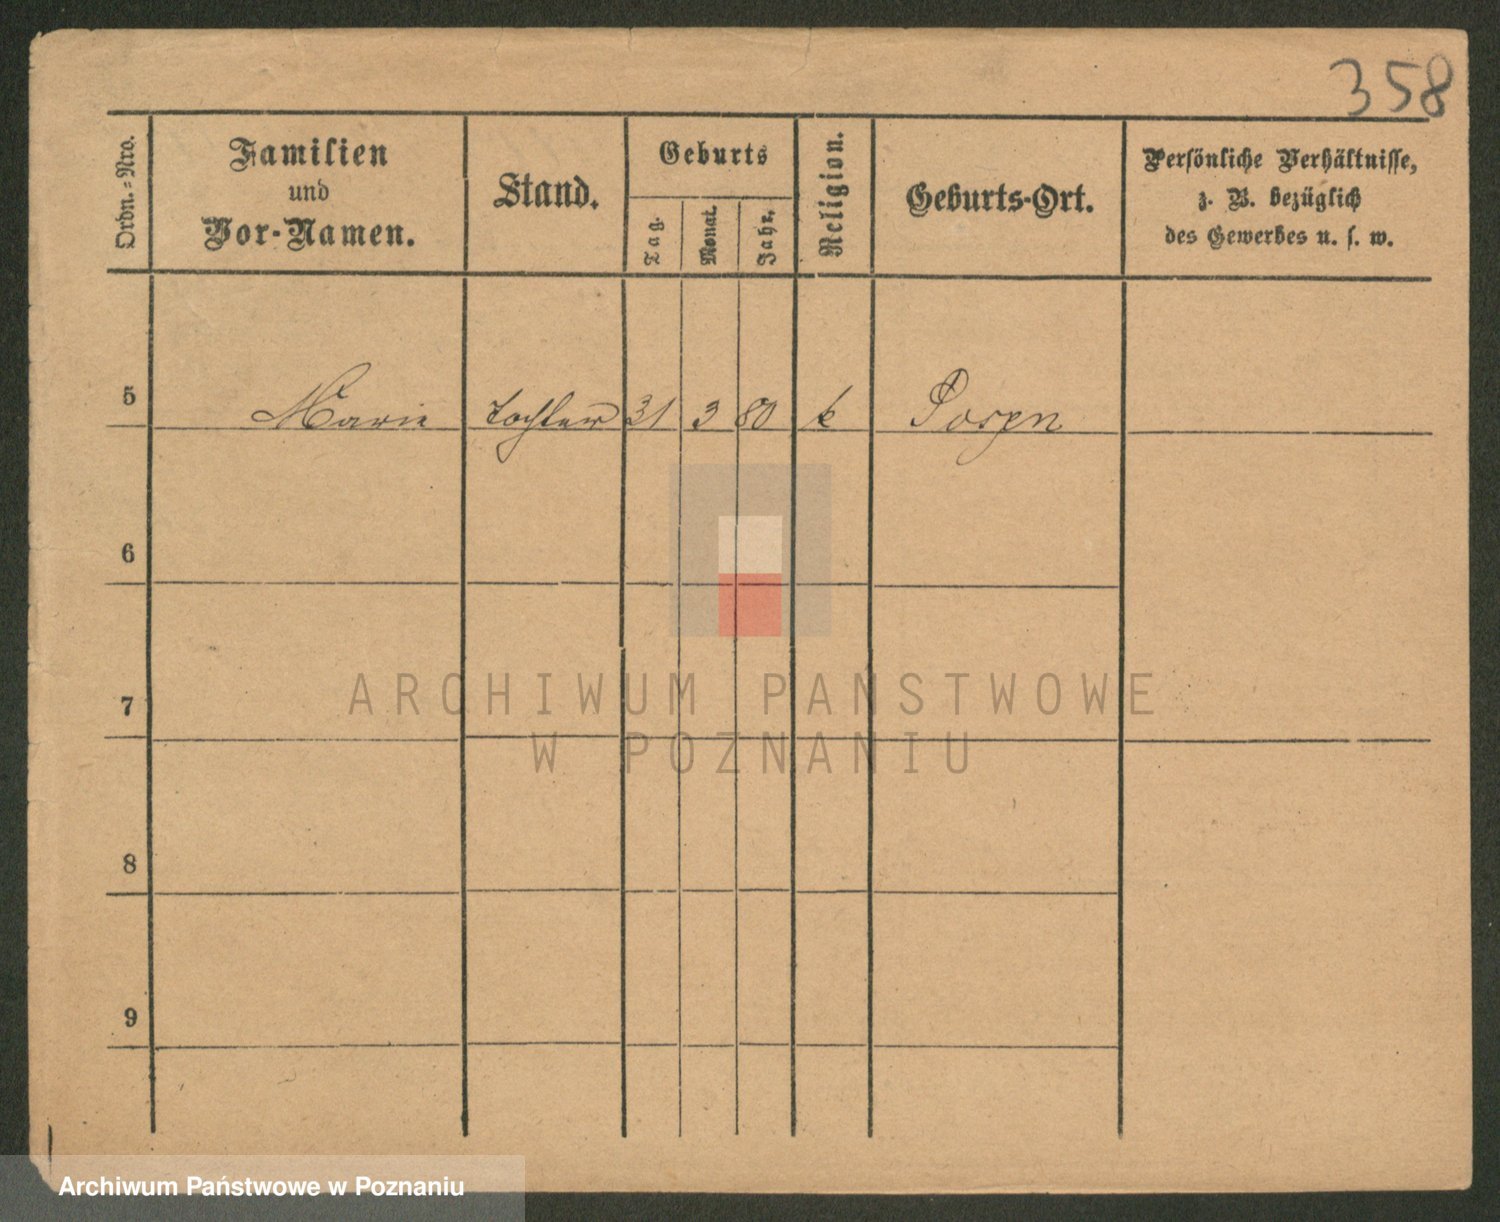 358
Ordn.=Nro.
Familien
und
Vor-Namen.
Stand.
Geburts
Tag.
Monat.
Jahr.
Religion.
Geburts-Ort.
Persönliche Verhältnisse,
z. B. bezüglich
des Gewerbes u. s. w.
5 Marie Tochter 31 3 80 k Posen
6
7
8
9
ARCHIWUM PAŃSTWOWE
W POZNANIU
Archiwum Państwowe w Poznaniu